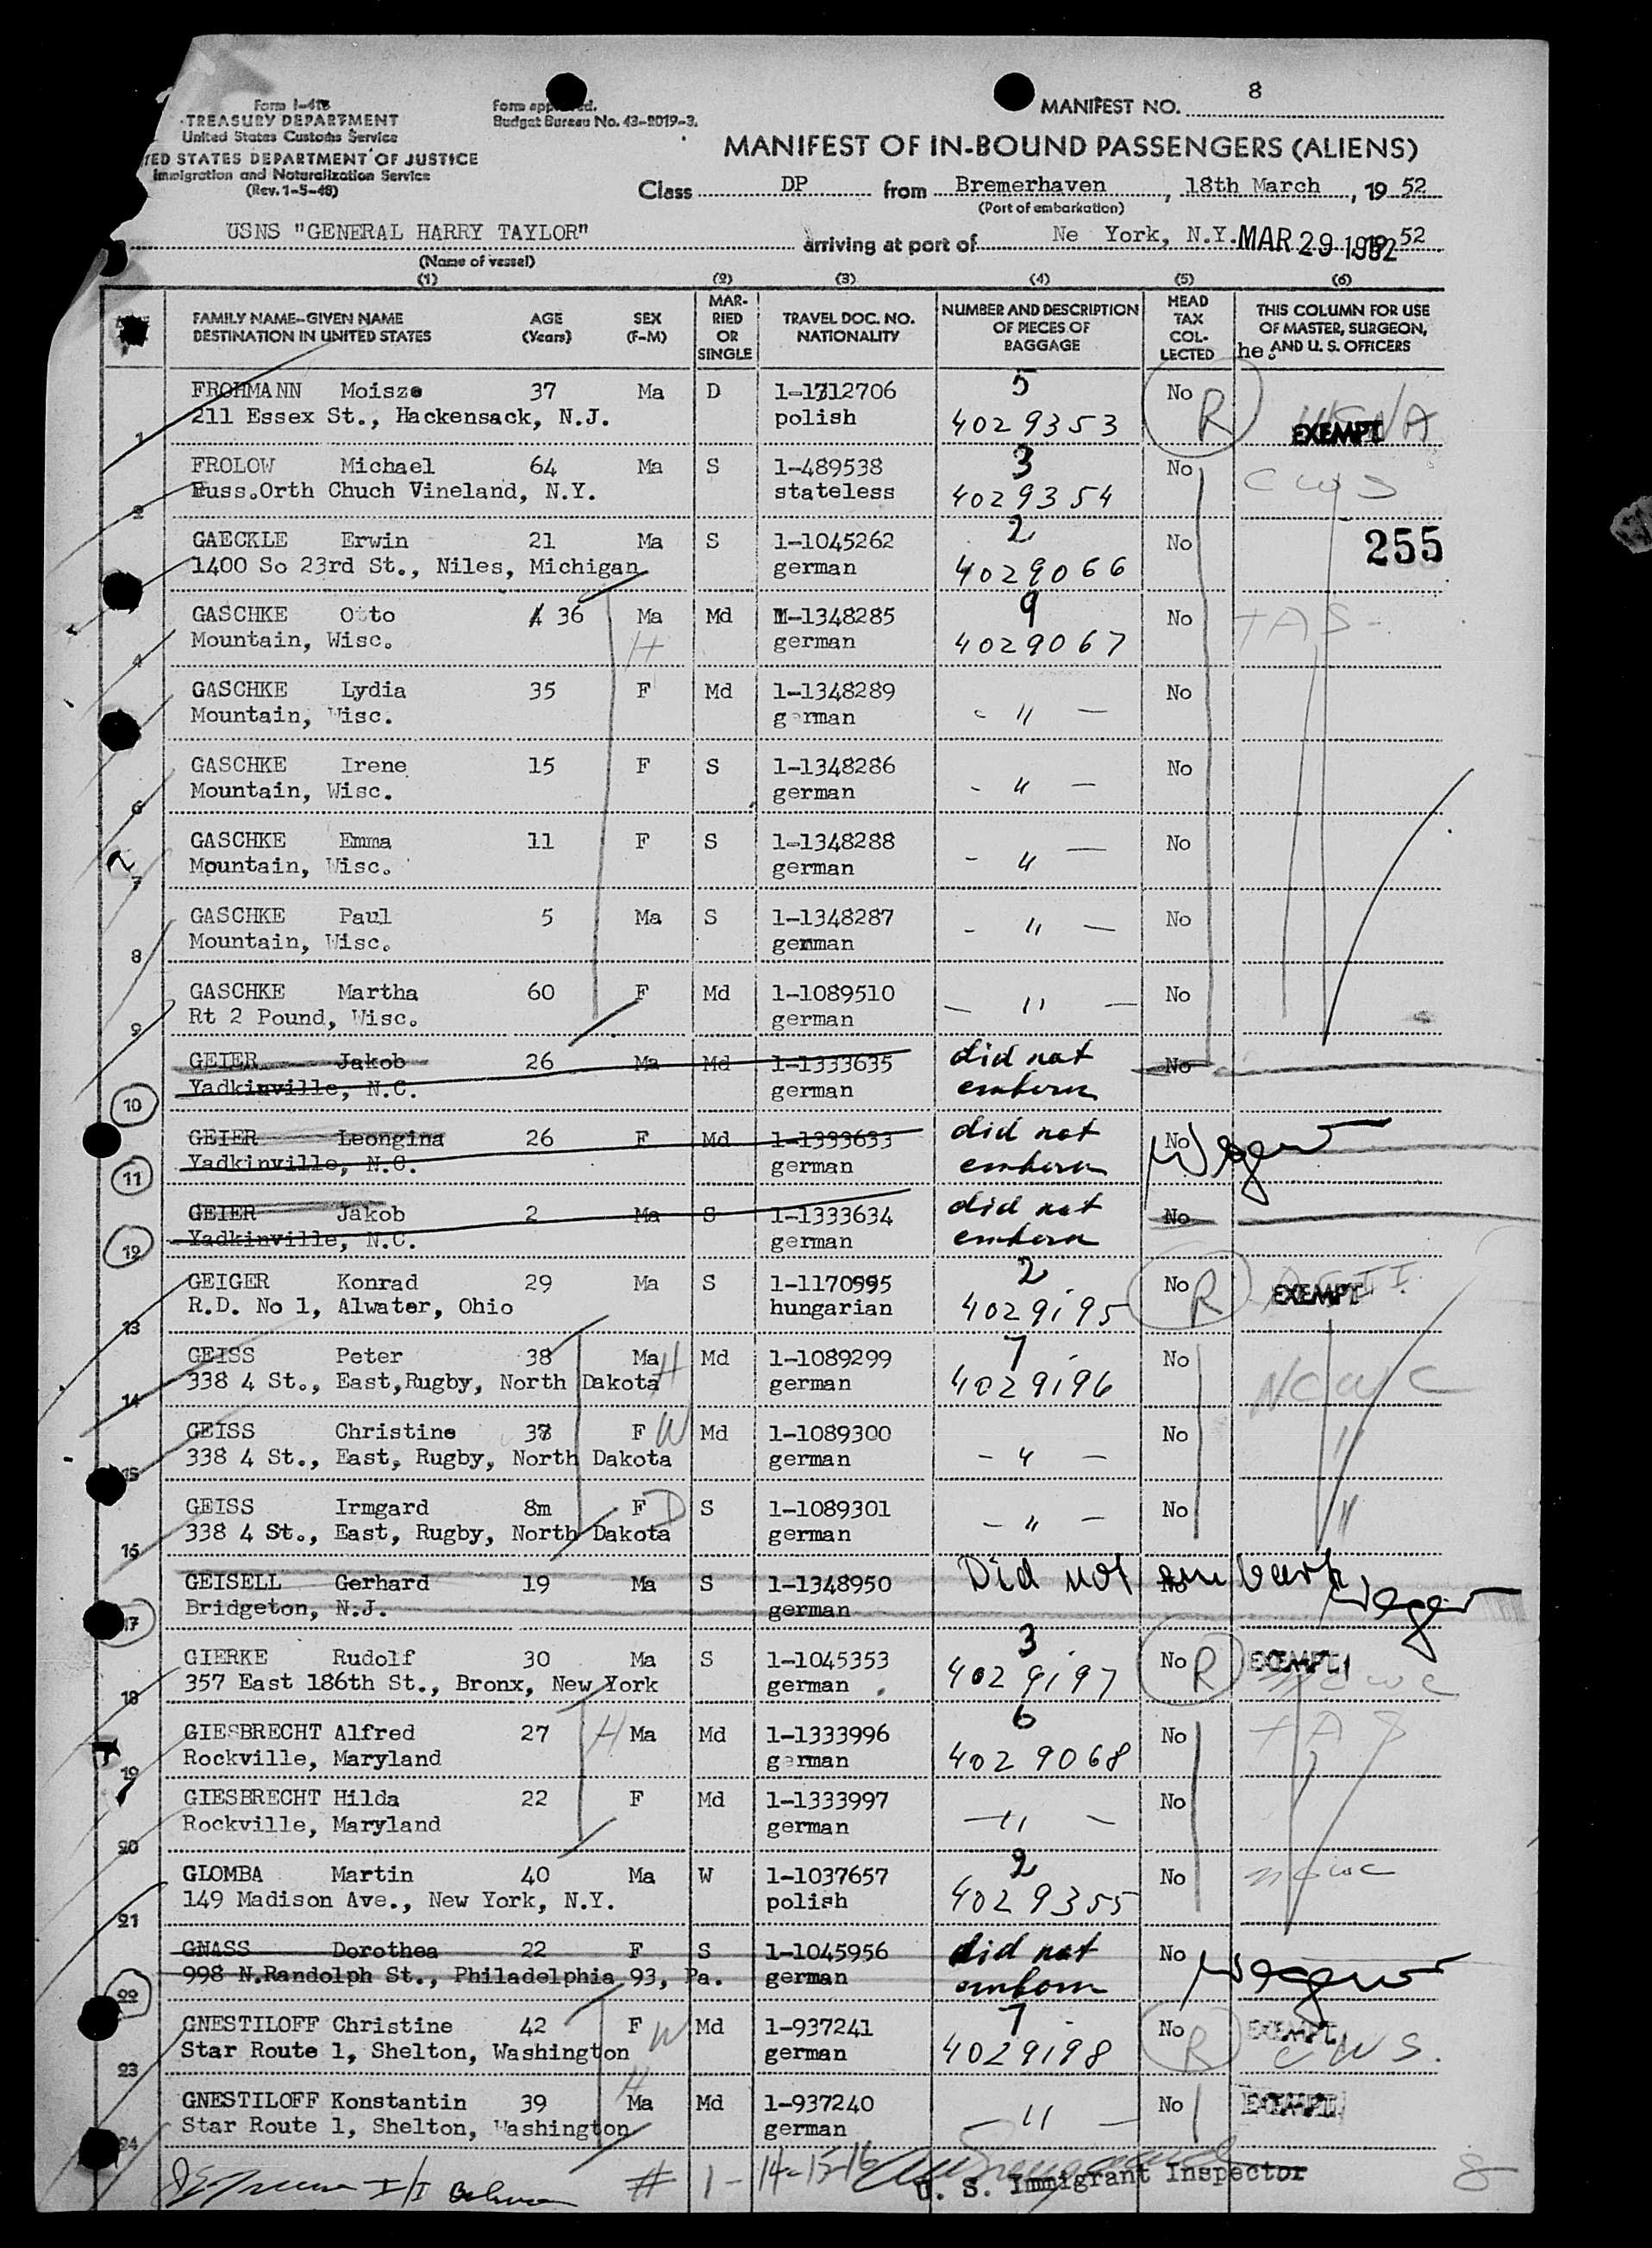 8
Form I-418
TREASURY DEPARTMENT
United States Customs Service
TED STATES DEPARTMENT OF JUSTICE
Immigration and Naturalization Service
(Rev. 1-5-48)
Form approved.
Budget Bureau No. 43-R019-3.
MANIFEST NO.
MANIFEST OF IN-BOUND PASSENGERS (ALIENS)
Class DP from Bremerhaven, 18th March, 19 52
(Port of embarkation)
USNS "GENERAL HARRY TAYLOR" arriving at port of Ne York, N.Y. MAR 29 1952 52
(Name of vessel)
(1) (2) (3) (4) (5) (6)
FAMILY NAME-GIVEN NAME DESTINATION IN UNITED STATES
AGE (Years)
SEX (F-M)
MARRIED OR SINGLE
TRAVEL DOC. NO. NATIONALITY
NUMBER AND DESCRIPTION OF PIECES OF BAGGAGE
HEAD TAX COLLECTED
he.
THIS COLUMN FOR USE OF MASTER, SURGEON, AND U. S. OFFICERS
FROHMANN Moisze 37 Ma D 1-1312706 5 No R EXEMPT
1 211 Essex St., Hackensack, N.J. polish 4029353
FROLOW Michael 64 Ma S 1-489538 3 No CWS
2 Russ.Orth Chuch Vineland, N.Y. stateless 4029354
GAECKLE Erwin 21 Ma S 1-1045262 2 No 255
1400 So 23rd St., Niles, Michigan german 4029066
GASCHKE Otto 36 Ma Md 1-1348285 9 No TAS
4 Mountain, Wisc. H german 4029067
GASCHKE Lydia 35 F Md 1-1348289 - " - No
Mountain, Wisc. german
GASCHKE Irene 15 F S 1-1348286 - " - No
6 Mountain, Wisc. german
GASCHKE Emma 11 F S 1-1348288 - " - No
7 Mountain, Wisc. german
GASCHKE Paul 5 Ma S 1-1348287 - " - No
8 Mountain, Wisc. german
GASCHKE Martha 60 F Md 1-1089510 - " - No
9 Rt 2 Pound, Wisc. german
GEIER Jakob 26 Ma Md 1-1333635 did not No
10 Yadkinville, N.C. german embark
GEIER Leongina 26 F Md 1-1333633 did not No
11 Yadkinville, N.C. german embark
GEIER Jakob 2 Ma S 1-1333634 did not No
12 Yadkinville, N.C. german embark
GEIGER Konrad 29 Ma S 1-1170995 2 No R EXEMPT
13 R.D. No 1, Alwater, Ohio hungarian 4029195
GEISS Peter 38 Ma H Md 1-1089299 7 No NCWC
14 338 4 St., East,Rugby, North Dakota german 4029196
GEISS Christine 38 F W Md 1-1089300 - " - No "
15 338 4 St., East, Rugby, North Dakota german
GEISS Irmgard 8m F D S 1-1089301 - " - No "
16 338 4 St., East, Rugby, North Dakota german
GEISELL Gerhard 19 Ma S 1-1348950 Did not embark
17 Bridgeton, N.J. german
GIERKE Rudolf 30 Ma S 1-1045353 3 No R EXEMPT
18 357 East 186th St., Bronx, New York german 4029197 NCWC
GIESBRECHT Alfred 27 H Ma Md 1-1333996 6 No TAS
19 Rockville, Maryland german 4029068
GIESBRECHT Hilda 22 F Md 1-1333997 - " - No
20 Rockville, Maryland german
GLOMBA Martin 40 Ma W 1-1037657 2 No NCWC
21 149 Madison Ave., New York, N.Y. polish 4029355
GNASS Dorothea 22 F S 1-1045956 did not No
22 998 N.Randolph St., Philadelphia 93, Pa. german embark
GNESTILOFF Christine 42 F W Md 1-937241 7 No R EXEMPT
23 Star Route 1, Shelton, Washington german 4029198 CWS.
GNESTILOFF Konstantin 39 H Ma Md 1-937240 - " - No EXEMPT
24 Star Route 1, Shelton, Washington german
# 1-14-15-16
U. S. Immigrant Inspector
8